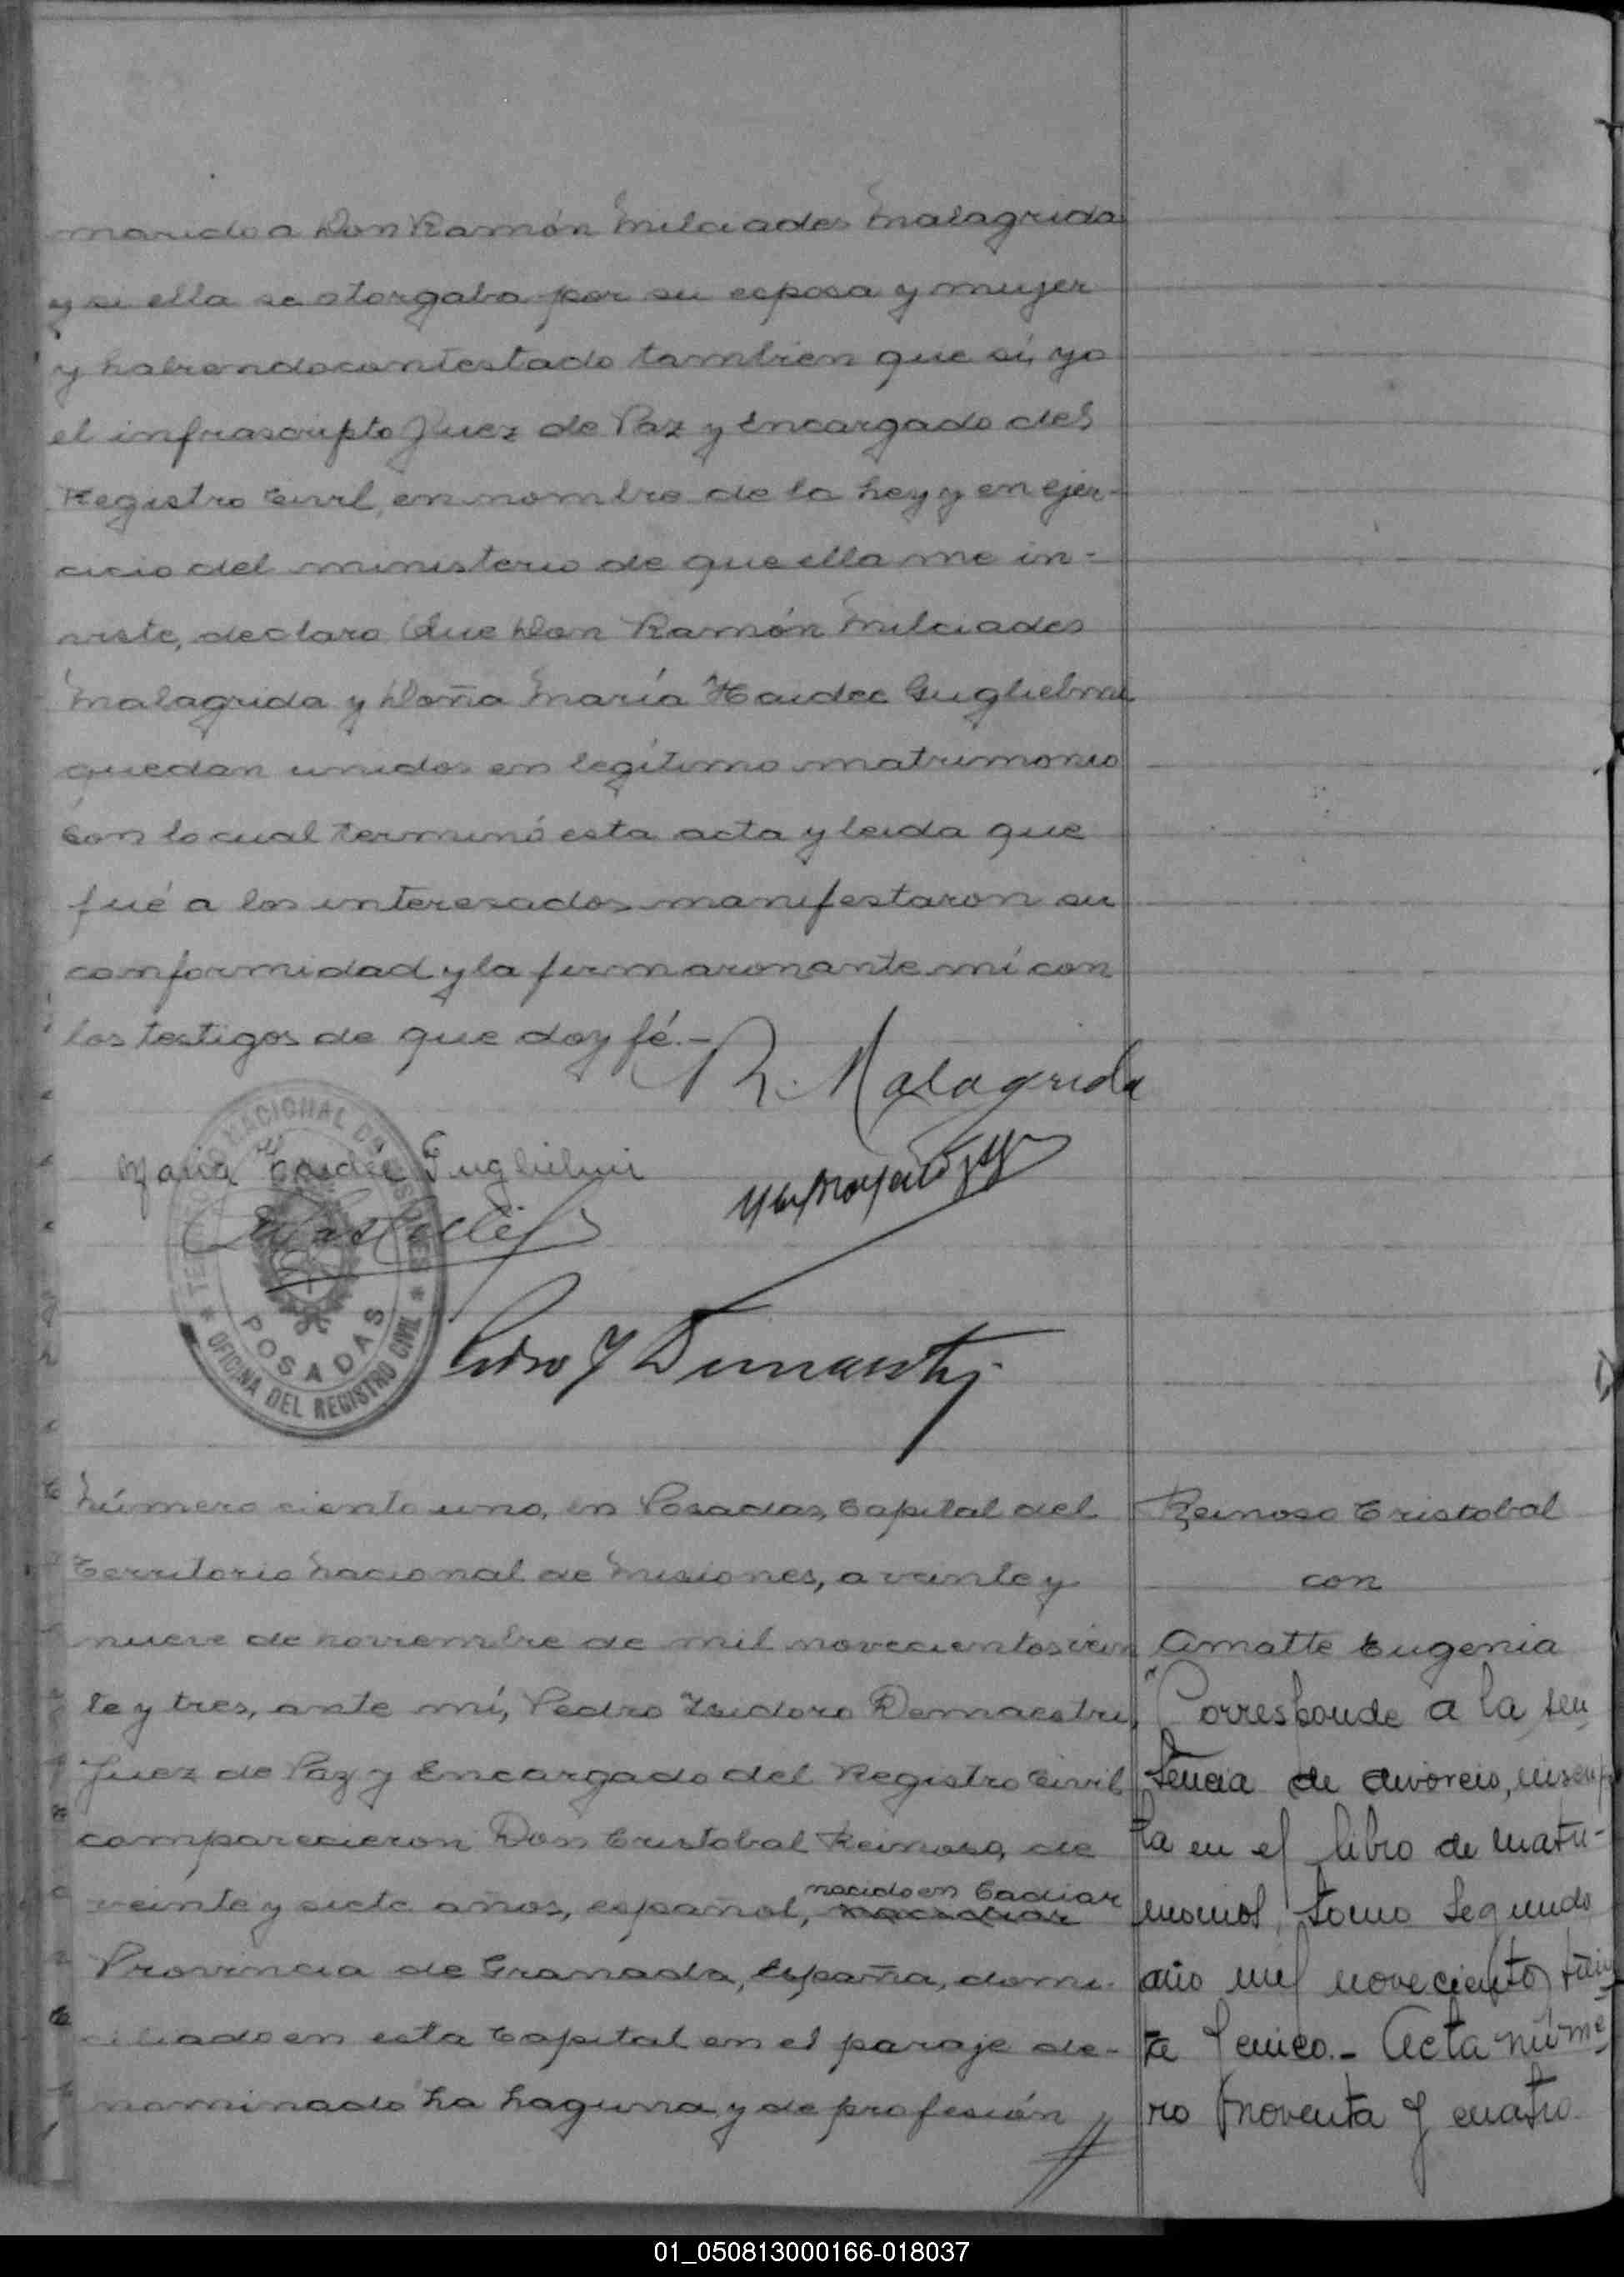 marido a Don Ramón Milciades Malagrida
y si ella se otorgaba por su esposa y mujer
y habiendo contestado tambien que sí, yo
el infrascripto Juez de Paz y Encargado del
Registro Civil, en nombre de la Ley y en ejer-
cicio del ministerio de que ella me in-
viste, declaro Que Don Ramón Milciades
Malagrida y Doña María Haidee Guglielmi
quedan unidos en legítimo matrimonio
Con lo cual terminó esta acta y leida que
fué a los interesados manifestaron su
conformidad y la firmaron ante mí con
los testigos de que doy fé.-
R. Malagrida
Maria Haidée Guglielmi
TERRITORIO NACIONAL DE MISIONES
POSADAS
OFICINA DEL REGISTRO CIVIL
Pedro I Demaestri
Número ciento uno, en Posadas, Capital del
Territorio Nacional de Misiones, a veinte y
nueve de noviembre de mil novecientos vein
te y tres, ante mí, Pedro Isidoro Demaestri,
Juez de Paz y Encargado del Registro Civil
comparecieron Don Cristobal Reinoso, de
veinte y siete años, español, nacido en Cadiar
Provincia de Granada, España, domi-
ciliado en esta Capital en el paraje de-
nominado La Laguna y de profesión
Reinoso Cristobal
con
Amatte Eugenia
Corresponde a la sen
tencia de divorcio, inscrip
ta en el libro de matri-
monios, tomo Segundo
año mil novecientos trein
ta y cinco.- Acta núme
ro noventa y cuatro
01_050813000166-018037